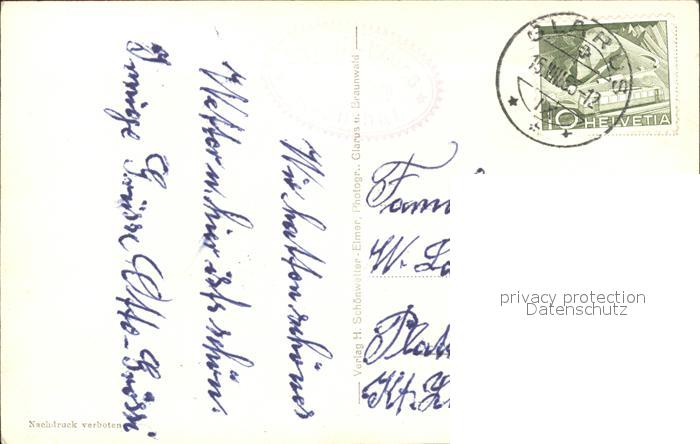 Wir hatten schönes
Wetter u. hier ists schön.
Innige Grüsse Otto-
Verlag H. Schönwetter-Elmer, Photogr., Glarus u. Braunwald
Nachdruck verboten
GLARUS
10 HELVETIA
Fam
W.
Kt.
privacy protection
Datenschutz